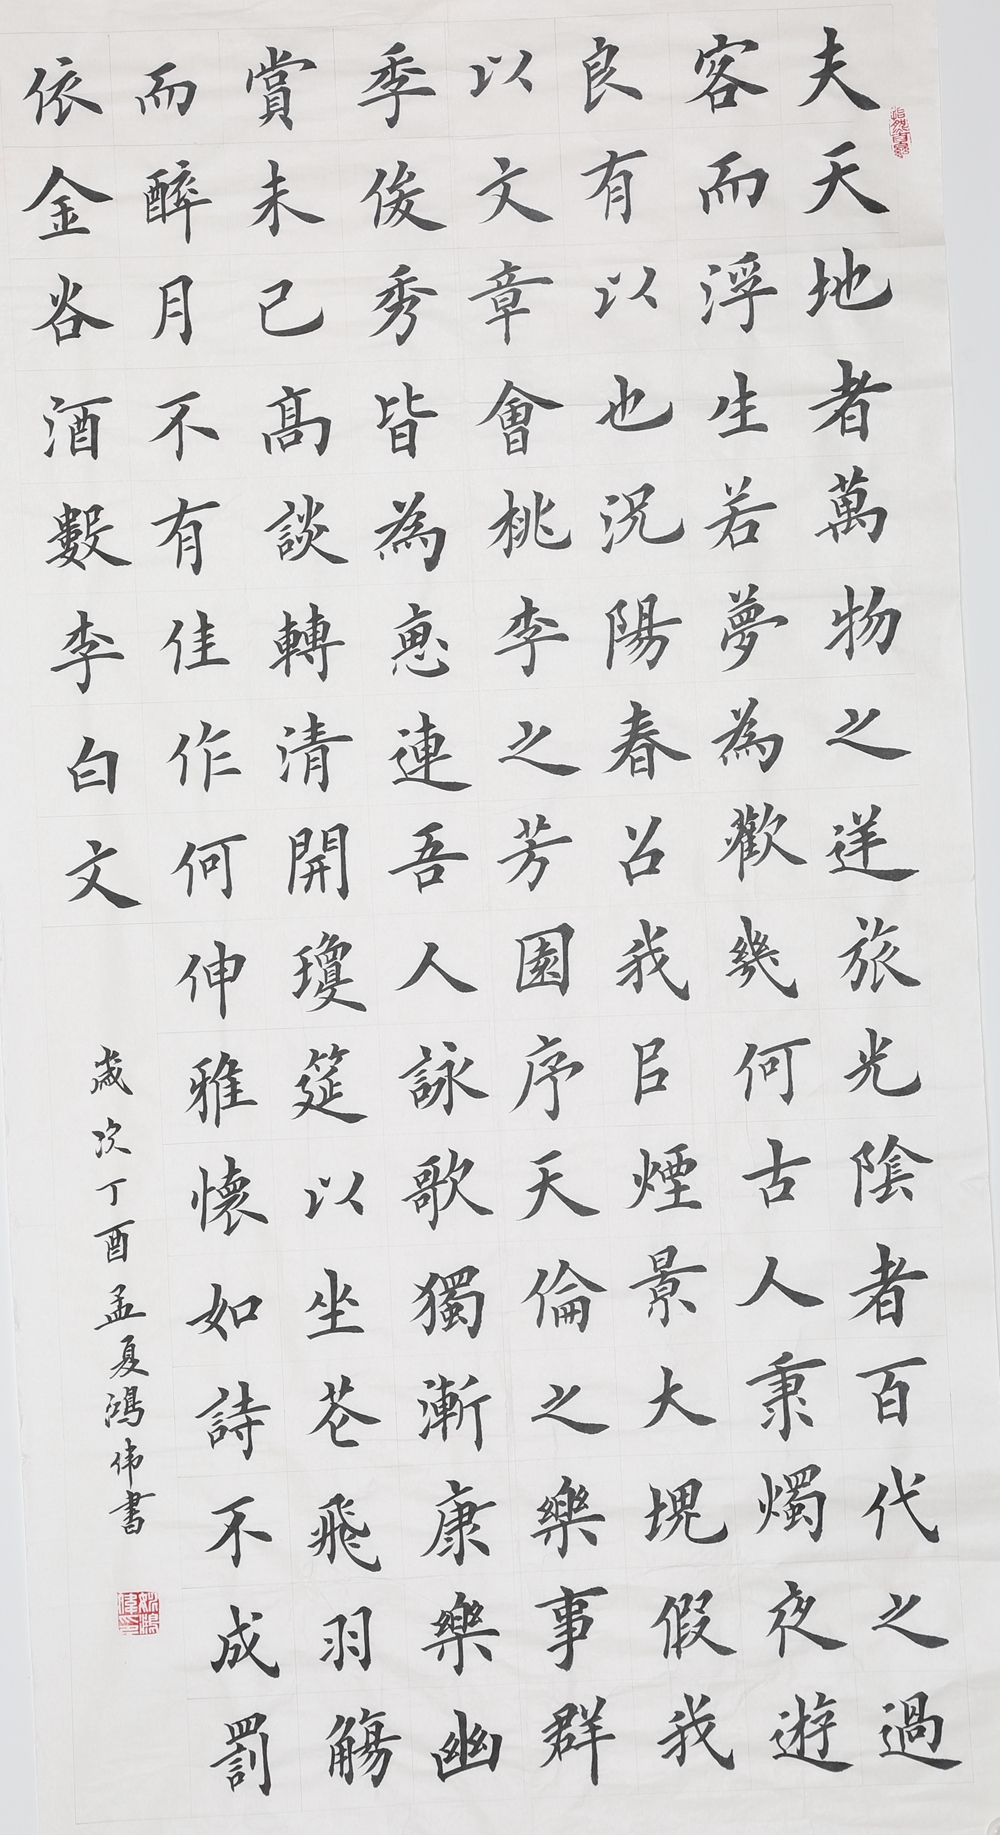 夫天地者萬物之逆旅光陰者百代之過
客而浮生若夢為歡幾何古人秉燭夜遊
良有以也況陽春召我㠯煙景大塊假我
以文章會桃李之芳園序天倫之樂事群
季俊秀皆為惠連吾人詠歌獨漸康樂幽
賞未已高談轉清開瓊筵以坐花飛羽觴
而醉月不有佳作何伸雅懷如詩不成罰
依金谷酒數李白文
歲次丁酉孟夏鴻伟書